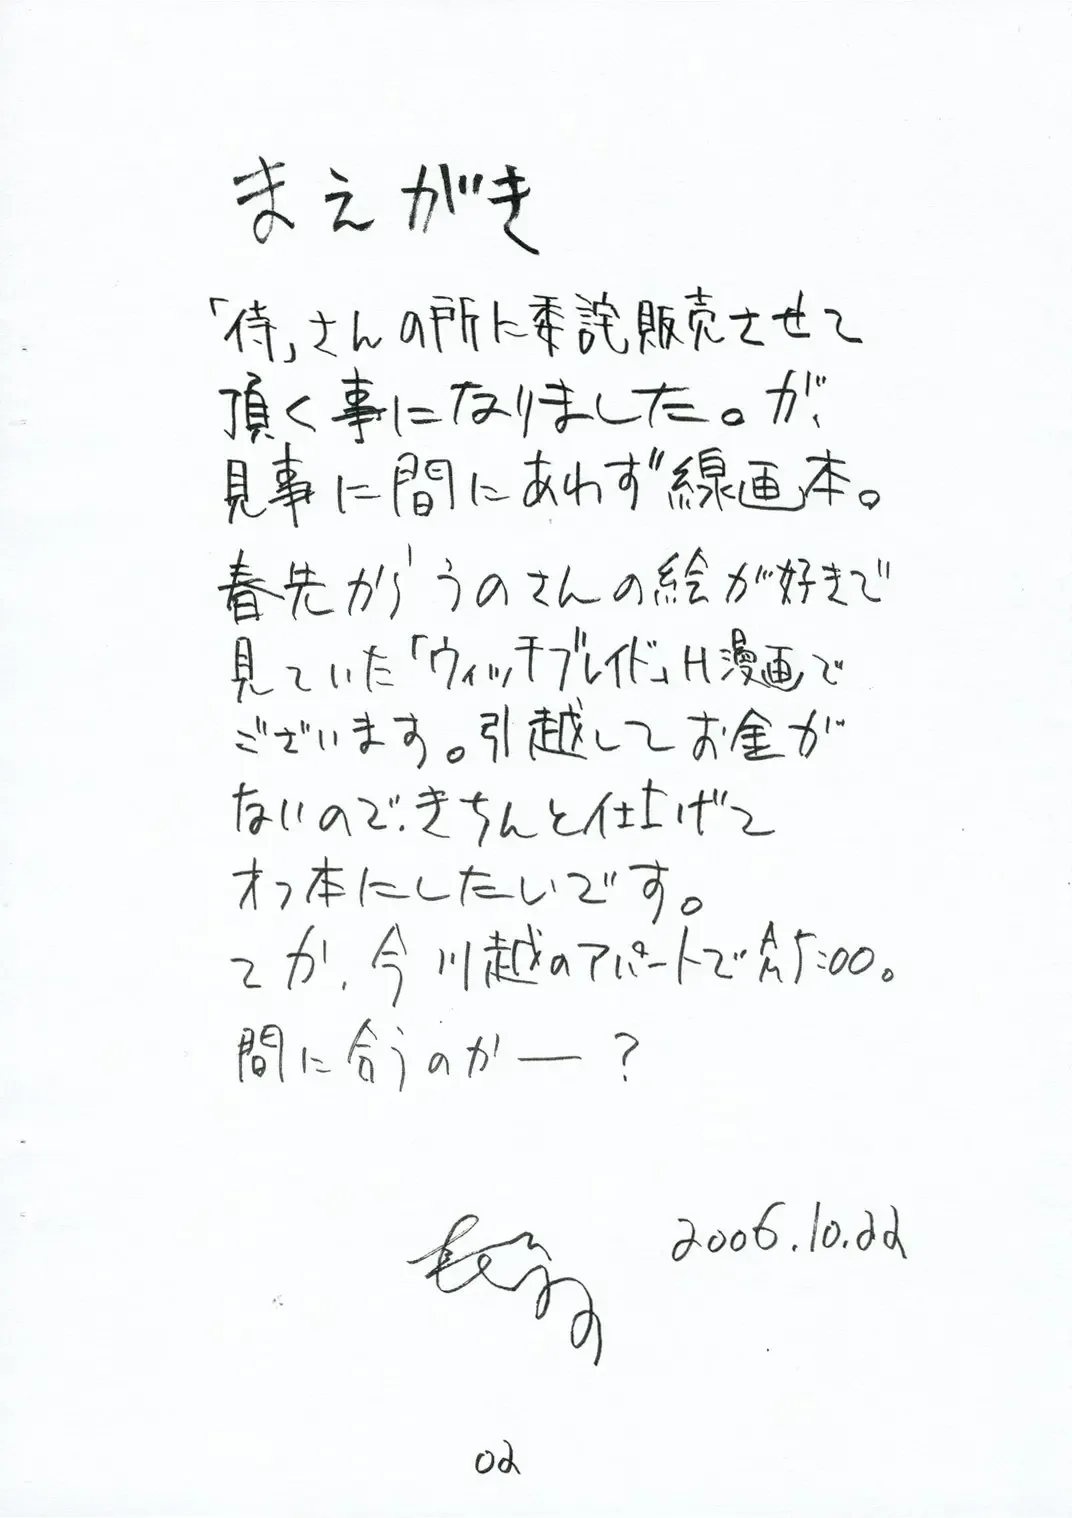 まえがき
「侍」さんの所に委託販売させて
頂く事になりました。が、
見事に間にあわず線画本。
春先から、うのさんの絵が好きで
見ていた「ウィッチブレイド」H漫画で
ございます。引越してお金が
ないので、きちんと仕上げて
オフ本にしたいです。
てか、今川越のアパートで AM5:00。
間に合うのかー?
2006.10.22
02